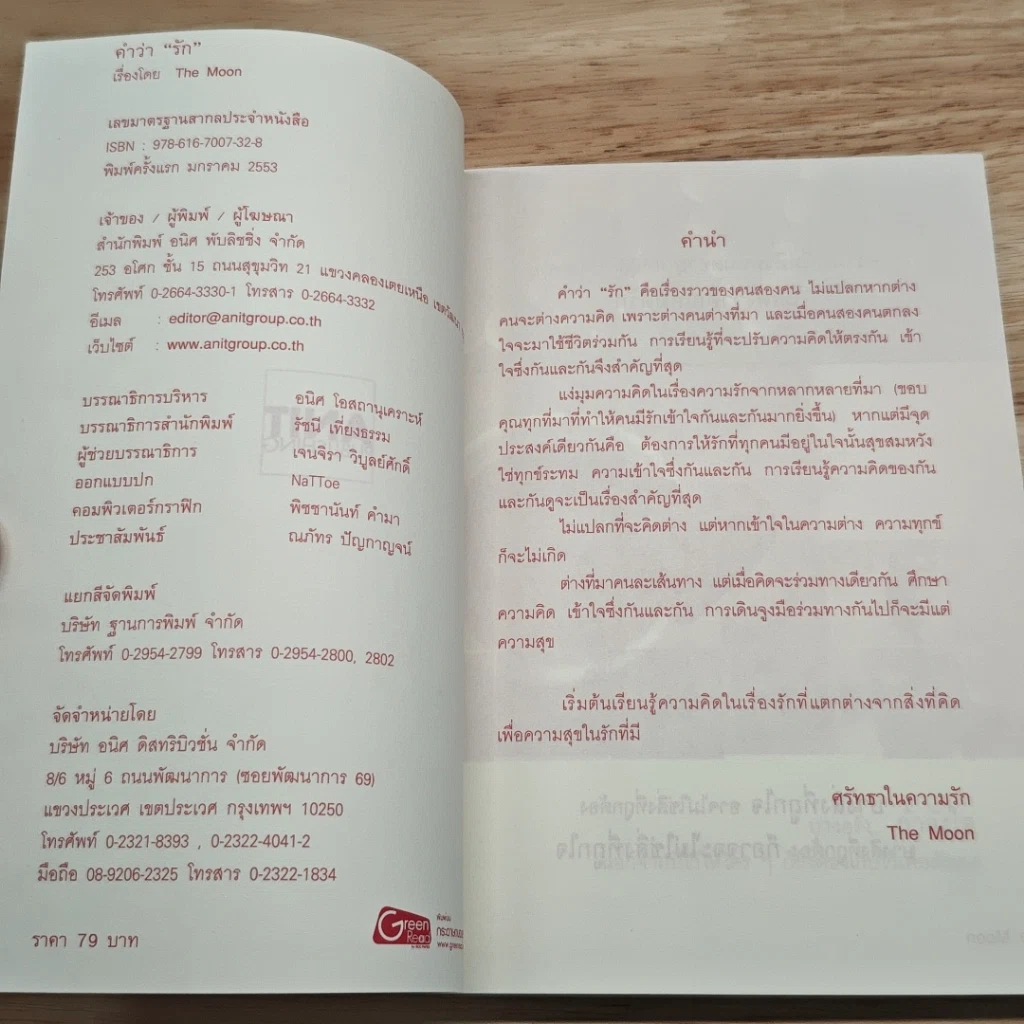 คำว่า “รัก”
เรื่องโดย The Moon
เลขมาตรฐานสากลประจำหนังสือ
ISBN : 978-616-7007-32-8
พิมพ์ครั้งแรก มกราคม 2553
เจ้าของ / ผู้พิมพ์ / ผู้โฆษณา
สำนักพิมพ์ อนิศ พับลิชชิ่ง จำกัด
253 อโศก ชั้น 15 ถนนสุขุมวิท 21 แขวงคลองเตยเหนือ เขตวัฒนา
โทรศัพท์ 0-2664-3330-1 โทรสาร 0-2664-3332
อีเมล : editor@anitgroup.co.th
เว็บไซต์ : www.anitgroup.co.th
บรรณาธิการบริหาร อนิศ โอสถานุเคราะห์
บรรณาธิการสำนักพิมพ์ รัชนี เที่ยงธรรม
ผู้ช่วยบรรณาธิการ เจนจิรา วิบูลย์ศักดิ์
ออกแบบปก NaTToe
คอมพิวเตอร์กราฟิก พิชชานันท์ คำมา
ประชาสัมพันธ์ ณภัทร ปัญกาญจน์
แยกสีจัดพิมพ์
บริษัท ฐานการพิมพ์ จำกัด
โทรศัพท์ 0-2954-2799 โทรสาร 0-2954-2800, 2802
จัดจำหน่ายโดย
บริษัท อนิศ ดิสทริบิวชั่น จำกัด
8/6 หมู่ 6 ถนนพัฒนาการ (ซอยพัฒนาการ 69)
แขวงประเวศ เขตประเวศ กรุงเทพฯ 10250
โทรศัพท์ 0-2321-8393 , 0-2322-4041-2
มือถือ 08-9206-2325 โทรสาร 0-2322-1834
ราคา 79 บาท
Green
Read
คำนำ
คำว่า “รัก” คือเรื่องราวของคนสองคน ไม่แปลกหากต่าง
คนจะต่างความคิด เพราะต่างคนต่างที่มา และเมื่อคนสองคนตกลง
ใจจะมาใช้ชีวิตร่วมกัน การเรียนรู้ที่จะปรับความคิดให้ตรงกัน เข้า
ใจซึ่งกันและกันจึงสำคัญที่สุด
แง่มุมความคิดในเรื่องความรักจากหลากหลายที่มา (ขอบ
คุณทุกที่มาที่ทำให้คนมีรักเข้าใจกันและกันมากยิ่งขึ้น) หากแต่มีจุด
ประสงค์เดียวกันคือ ต้องการให้รักที่ทุกคนมีอยู่ในใจนั้นสุขสมหวัง
ใช่ทุกข์ระทม ความเข้าใจซึ่งกันและกัน การเรียนรู้ความคิดของกัน
และกันดูจะเป็นเรื่องสำคัญที่สุด
ไม่แปลกที่จะคิดต่าง แต่หากเข้าใจในความต่าง ความทุกข์
ก็จะไม่เกิด
ต่างที่มาคนละเส้นทาง แต่เมื่อคิดจะร่วมทางเดียวกัน ศึกษา
ความคิด เข้าใจซึ่งกันและกัน การเดินจูงมือร่วมทางกันไปก็จะมีแต่
ความสุข
เริ่มต้นเรียนรู้ความคิดในเรื่องรักที่แตกต่างจากสิ่งที่คิด
เพื่อความสุขในรักที่มี
ศรัทธาในความรัก
The Moon